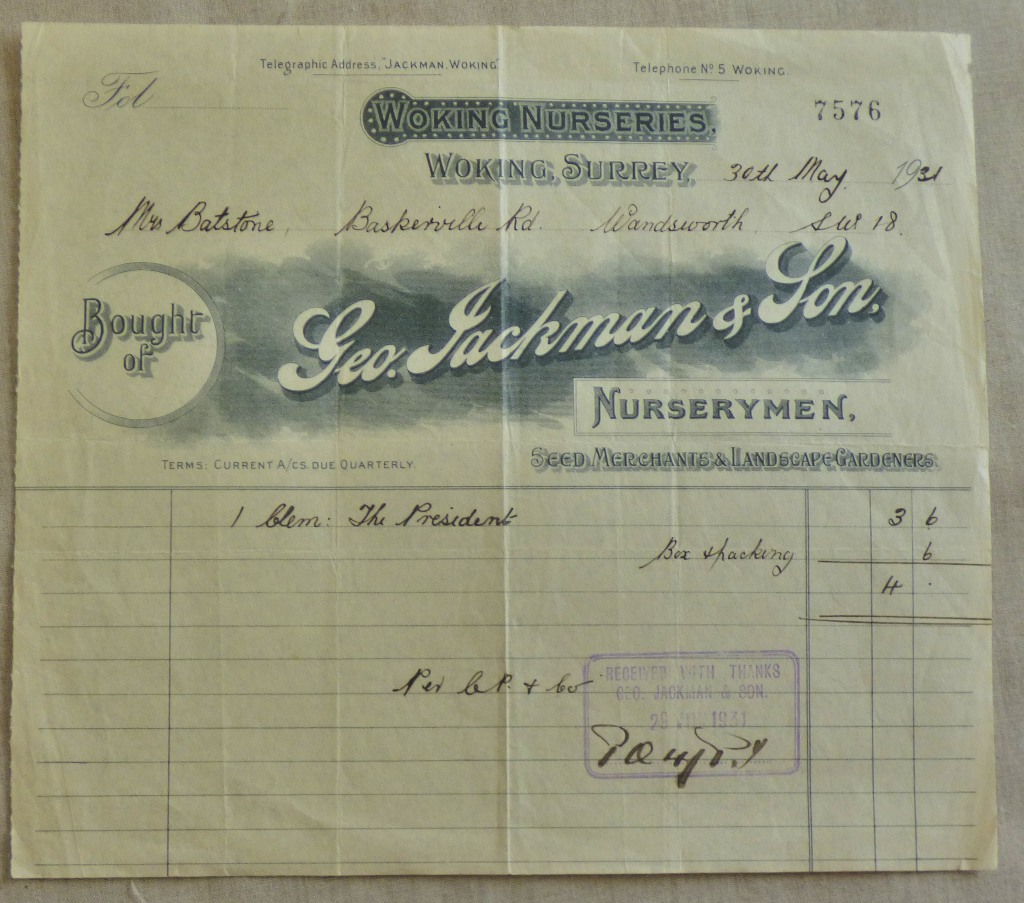 Telegraphic Address, "JACKMAN, WOKING" Telephone Nº 5 WOKING.
Fol
WOKING NURSERIES, 7576
WOKING, SURREY, 30th May. 1931
Mrs Batstone, Baskerville Rd. Wandsworth. SW 18.
Bought of
Geo. Jackman & Son.
NURSERYMEN,
TERMS: CURRENT A/CS. DUE QUARTERLY. SEED MERCHANTS & LANDSCAPE GARDENERS.
1 Clem: The President 3 6
Box & packing 6
4 .
Per C.P. & Co
RECEIVED WITH THANKS
GEO. JACKMAN & SON.
1931